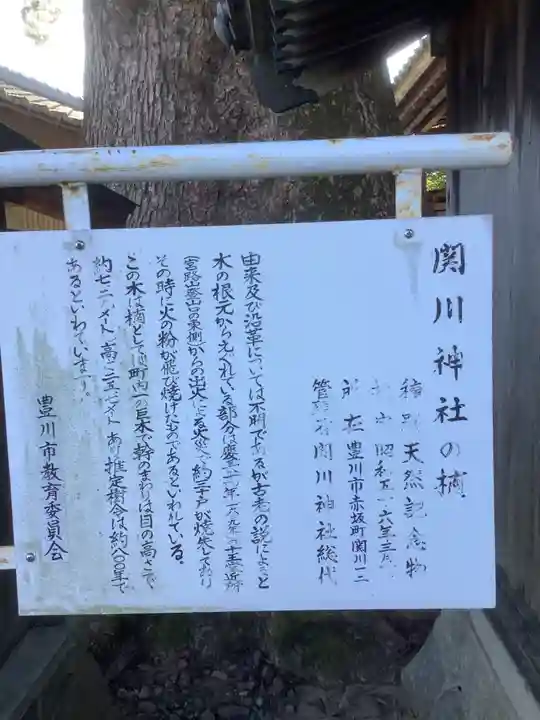 関川神社の楠
種別 天然記念物
昭和五六年三月
所在 豊川市赤坂町関川一二
管理者 関川神社総代
由来及び沿革については不明であるが古老の説によると
木の根元からえぐれている部分は慶長十四年
(宮路山登山口の東側)からの出火による火災で約三戸が焼失しており
その時に火の粉が飛び焼けたものであるといわれている。
この木は楠としては町内一の巨木で幹のまわりは目の高さで
約七・二メートル 高さ二五・七メートルあり推定樹令は約八〇〇年で
あるといわれています。
豊川市教育委員会